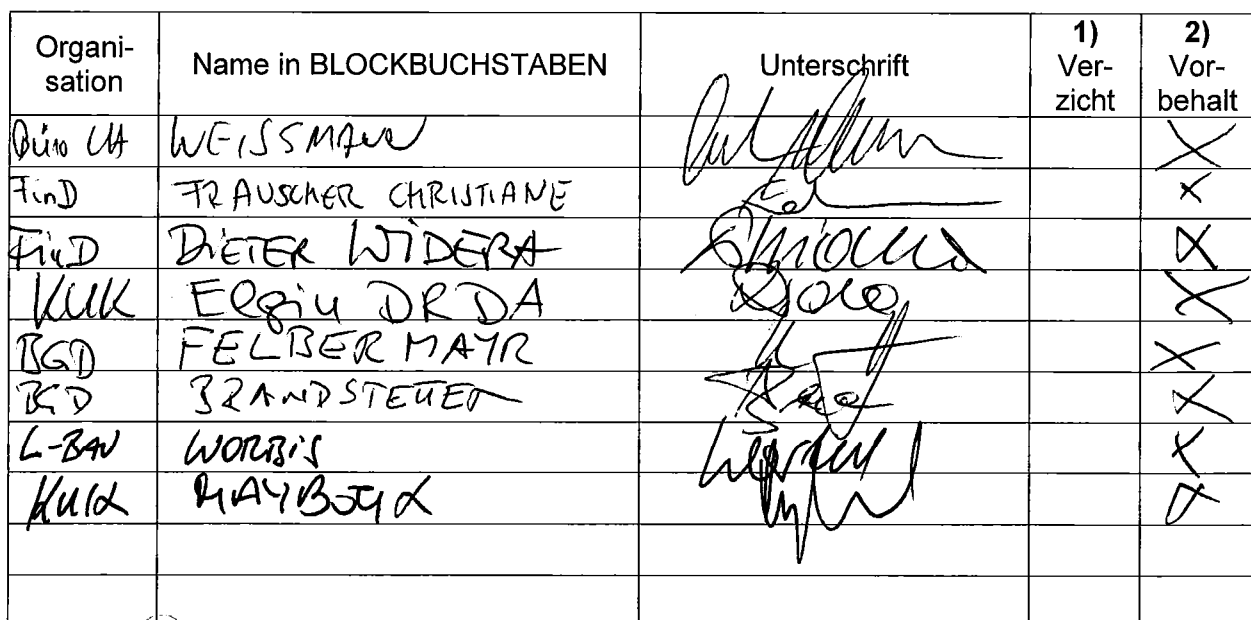 Organi-sation Name in BLOCKBUCHSTABEN Unterschrift 1) Ver-zicht 2) Vor-behalt
Büro LH WEISSMANN X
FinD FRAUSCHER CHRISTIANE X
FinD DIETER WIDERA X
KUK Elgin DRDA X
BGD FELBERMAYR X
BGD BRANDSTETTER X
L-BAV WORBIS X
KUK X